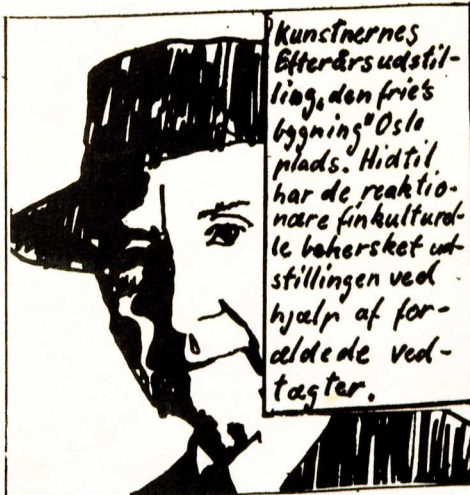 Kunstnernes
Efterårsudstil-
ling, „den frie's
bygning" Oslo
plads. Hidtil
har de reaktio-
nære finkulturel-
le behersket ud-
stillingen ved
hjælp af for-
ældede ved-
tægter.